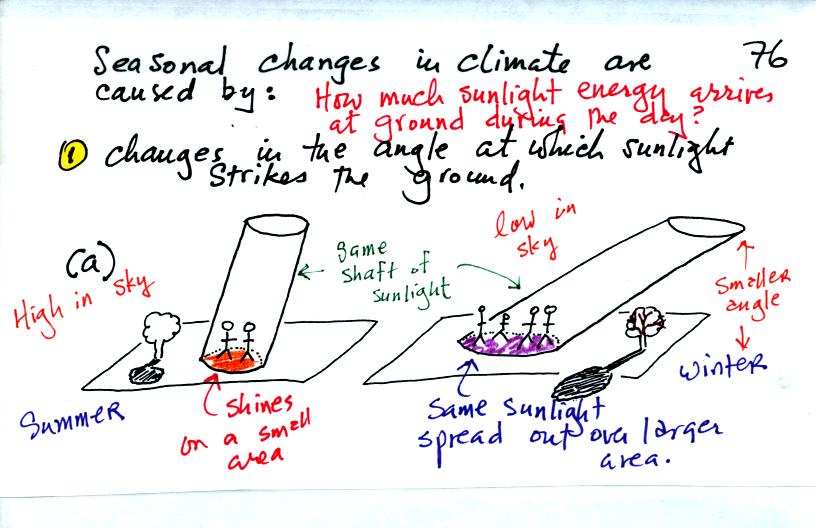 Seasonal changes in climate are
76
caused by:
How much sunlight energy arrives
at ground during the day?
1 changes in the angle at which sunlight
Strikes the ground.
(a)
High in sky
same
shaft of
sunlight
low in
sky
smaller
angle
Summer
Winter
Shines
on a small
area
Same sunlight
spread out over larger
area.